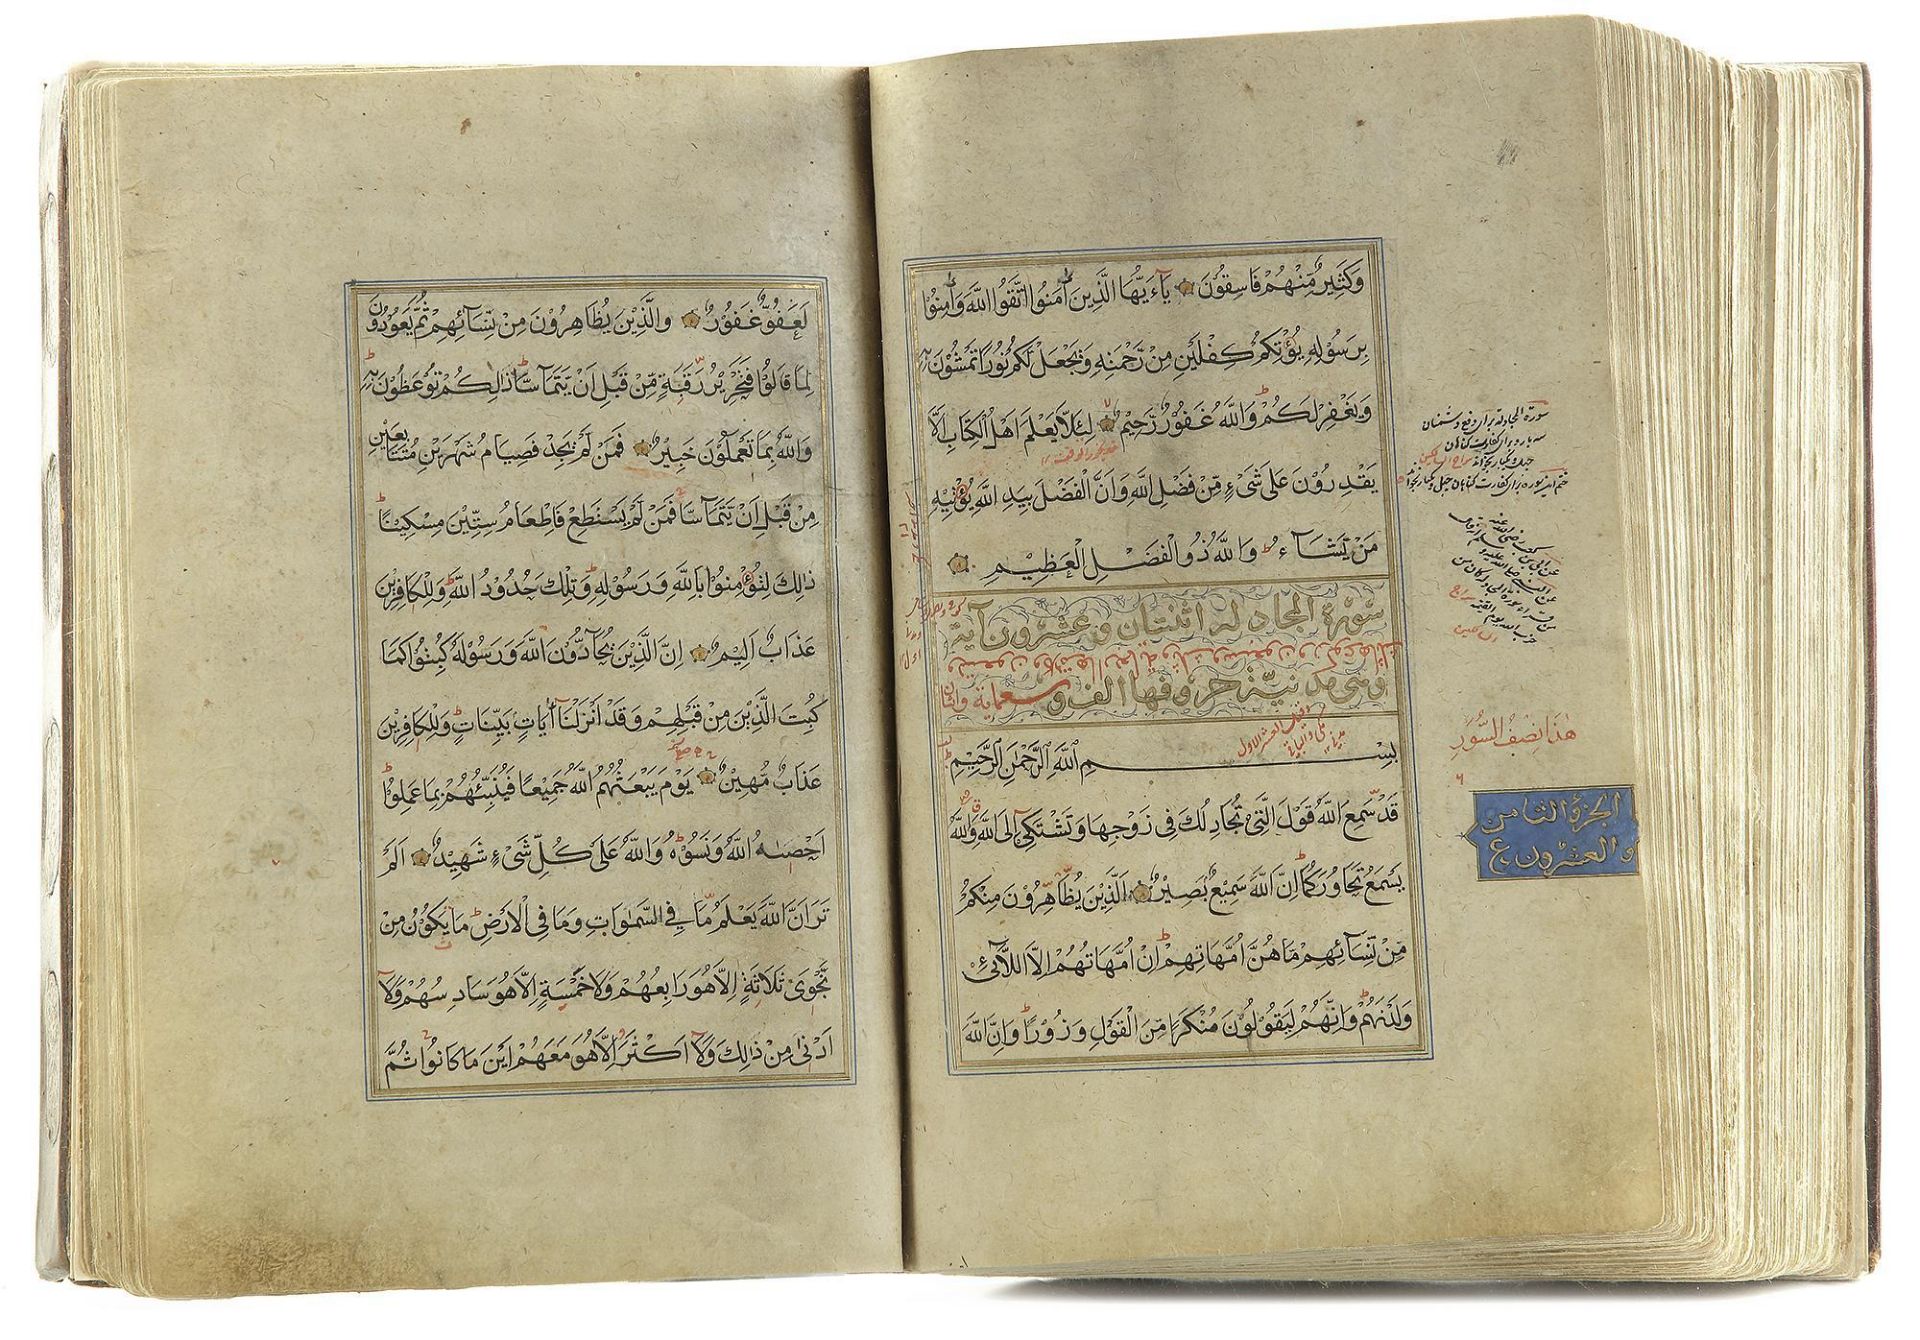 وَكَثِيرٌ مِّنْهُمْ فَاسِقُونَ يَاءَيُّهَا الَّذِينَ اٰمَنُوا اتَّقُوا اللّٰهَ وَاٰمِنُوا
بِرَسُولِهٖ يُؤْتِكُمْ كِفْلَيْنِ مِنْ رَّحْمَتِهٖ وَيَجْعَلْ لَكُمْ نُورًا تَمْشُوْنَ بِهٖ
وَيَغْفِرْ لَكُمْ وَاللّٰهُ غَفُورٌ رَّحِيمٌ لِئَلَّا يَعْلَمَ اَهْلُ الْكِتَابِ اَلَّا
يَقْدِرُوْنَ عَلٰى شَىْءٍ مِّنْ فَضْلِ اللّٰهِ وَاَنَّ الْفَضْلَ بِيَدِ اللّٰهِ يُؤْتِيْهِ
مَنْ يَّشَآءُ وَاللّٰهُ ذُو الْفَضْلِ الْعَظِيْمِ
سُوْرَةُ المجادلة اثنتان وعشرون آية
وهى مدنيّة حروفها الف و سعماية واثنان
بِسْمِ اللّٰهِ الرَّحْمٰنِ الرَّحِيْمِ
قَدْ سَّمِعَ اللّٰهُ قَوْلَ الَّتِيْ تُجَادِلُكَ فِيْ زَوْجِهَا وَتَشْتَكِيْ اِلَى اللّٰهِ وَاللّٰهُ
يَسْمَعُ تَحَاوُرَكُمَا اِنَّ اللّٰهَ سَمِيْعٌ بَصِيْرٌ اَلَّذِيْنَ يُظَاهِرُوْنَ مِنْكُمْ
مِّنْ نِّسَآئِهِمْ مَّا هُنَّ اُمَّهَاتِهِمْ اِنْ اُمَّهَاتُهُمْ اِلَّا اللَّآئِيْ
وَلَدْنَهُمْ وَاِنَّهُمْ لَيَقُوْلُوْنَ مُنْكَرًا مِّنَ الْقَوْلِ وَزُوْرًا وَاِنَّ اللّٰهَ
هٰذَا نِصْفُ السُّوَرِ
الجزؤ الثامن
والعشرون
لَعَفُوٌّ غَفُوْرٌ وَالَّذِيْنَ يُظَاهِرُوْنَ مِنْ نِّسَآئِهِمْ ثُمَّ يَعُوْدُوْنَ
لِمَا قَالُوْا فَتَحْرِيْرُ رَقَبَةٍ مِّنْ قَبْلِ اَنْ يَّتَمَآسَّا ذٰلِكُمْ تُوْعَظُوْنَ بِهٖ
وَاللّٰهُ بِمَا تَعْمَلُوْنَ خَبِيْرٌ فَمَنْ لَّمْ يَجِدْ فَصِيَامُ شَهْرَيْنِ مُتَتَابِعَيْنِ
مِنْ قَبْلِ اَنْ يَّتَمَآسَّا فَمَنْ لَّمْ يَسْتَطِعْ فَاِطْعَامُ سِتِّيْنَ مِسْكِيْنًا
ذٰلِكَ لِتُؤْمِنُوْا بِاللّٰهِ وَرَسُوْلِهٖ وَتِلْكَ حُدُوْدُ اللّٰهِ وَلِلْكَافِرِيْنَ
عَذَابٌ اَلِيْمٌ اِنَّ الَّذِيْنَ يُحَآدُّوْنَ اللّٰهَ وَرَسُوْلَهٗ كُبِتُوْا كَمَا
كُبِتَ الَّذِيْنَ مِنْ قَبْلِهِمْ وَقَدْ اَنْزَلْنَا اٰيَاتٍ بَيِّنَاتٍ وَلِلْكَافِرِيْنَ
عَذَابٌ مُّهِيْنٌ يَوْمَ يَبْعَثُهُمُ اللّٰهُ جَمِيْعًا فَيُنَبِّئُهُمْ بِمَا عَمِلُوْا
اَحْصٰىهُ اللّٰهُ وَنَسُوْهُ وَاللّٰهُ عَلٰى كُلِّ شَىْءٍ شَهِيْدٌ اَلَمْ
تَرَ اَنَّ اللّٰهَ يَعْلَمُ مَا فِي السَّمٰوَاتِ وَمَا فِي الْاَرْضِ مَا يَكُوْنُ مِنْ
نَّجْوٰى ثَلَاثَةٍ اِلَّا هُوَ رَابِعُهُمْ وَلَا خَمْسَةٍ اِلَّا هُوَ سَادِسُهُمْ وَلَآ
اَدْنٰى مِنْ ذٰلِكَ وَلَآ اَكْثَرَ اِلَّا هُوَ مَعَهُمْ اَيْنَ مَا كَانُوْا ثُمَّ